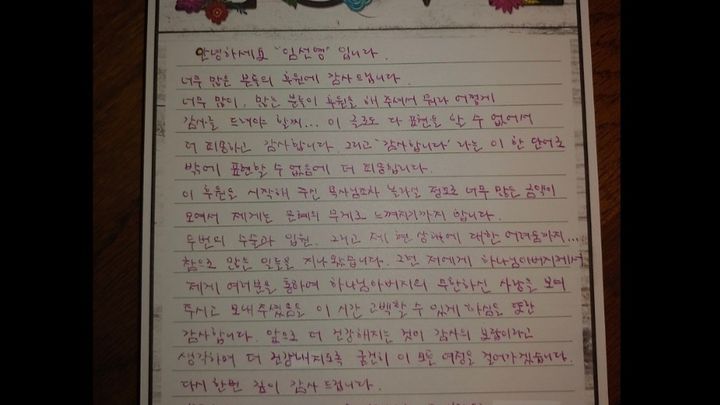 안녕하세요 "임선영" 입니다.
너무 많은 분들의 후원에 감사드립니다.
너무 많이, 많은 분들이 후원을 해 주셔서 뭐라 어떻게
감사를 드려야 할찌... 이 글로도 다 표현을 할 수 없어서
더 죄송하고 감사합니다. 그리고 '감사합니다' 라는 이 한 단어로
밖에 표현할 수 없음에 더 죄송합니다.
이 후원을 시작해 주신 목사님조차 놀라실 정도로 너무 많은 금액이
모여서 제게는 은혜의 무게로 느껴지기까지 합니다.
두번의 수술과 입원, 그리고 제 현 상황에 대한 어려움까지...
참으로 많은 일들을 지나왔습니다. 그런 저에게 하나님아버지께서
제게 여러분을 통하여 하나님아버지의 무한하신 사랑을 보여
주시고 보내주셨음을 이 시간 고백할 수 있게 하심을 또한
감사합니다. 앞으로 더 건강해지는 것이 감사의 보답이라고
생각하며 더 건강해지도록 굳건히 이 모든 여정을 걸어가겠습니다.
다시 한번 깊이 감사 드립니다.